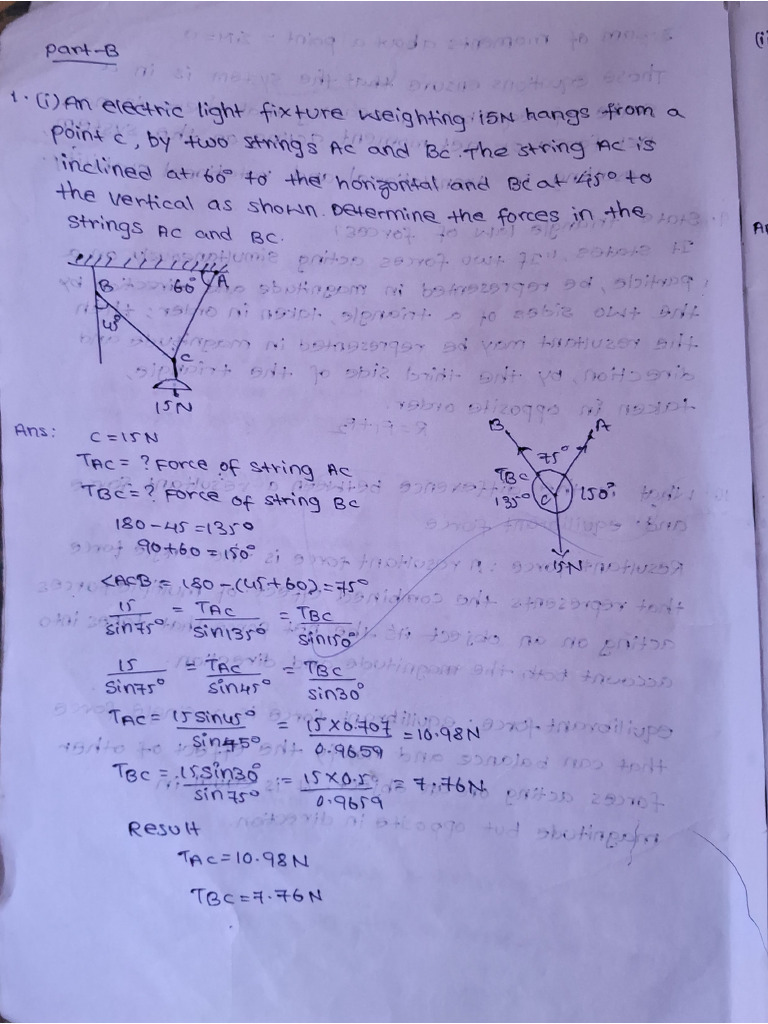 Part-B
1. (i) An electric light fixture weighting 15N hangs from a
Point C, by two strings AC and BC. The string AC is
inclined at 60° to the horizontal and BC at 45° to
the vertical as shown. Determine the forces in the
strings AC and BC.
B 60° A
45°
C
15N
Ans: C = 15N
TAC = ? Force of string AC
TBC = ? Force of string BC
180 - 45 = 135°
90 + 60 = 150°
B A
75°
TBC
135° C 150°
15N
<ACB = 180 - (45+60) = 75°
15/sin75° = TAC/sin135° = TBC/sin150°
15/sin75° = TAC/sin45° = TBC/sin30°
TAC = 15 sin45°/sin75° = 15 X 0.707/0.9659 = 10.98N
TBC = 15 sin30°/sin75° = 15 X 0.5/0.9659 = 7.76N
Result
TAC = 10.98N
TBC = 7.76N
(i